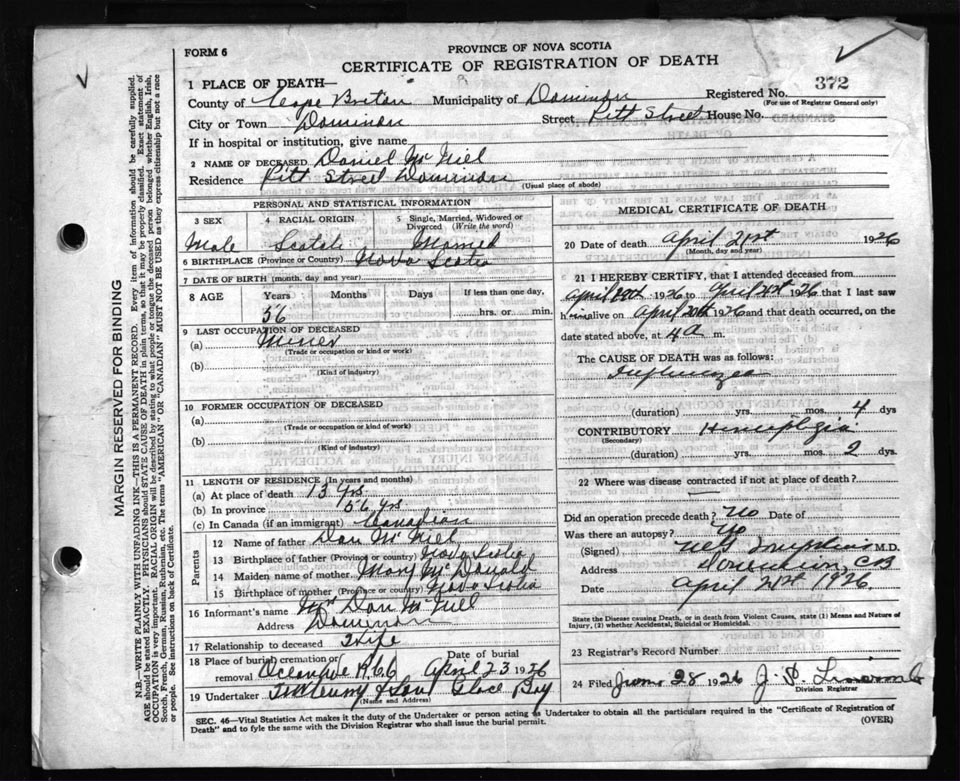 FORM 6
PROVINCE OF NOVA SCOTIA
CERTIFICATE OF REGISTRATION OF DEATH
1 PLACE OF DEATH—
Registered No. 372
(For use of Registrar General only)
County of Cape Breton Municipality of Dominion
City or Town Dominion Street Pitt Street House No.
If in hospital or institution, give name
2 NAME OF DECEASED Daniel McNiel
Residence Pitt Street Dominion
(Usual place of abode)
PERSONAL AND STATISTICAL INFORMATION
3 SEX 4 RACIAL ORIGIN 5 Single, Married, Widowed or Divorced (Write the word)
Male Scotch Married
6 BIRTHPLACE (Province or Country) Nova Scotia
7 DATE OF BIRTH (month, day and year)
8 AGE Years Months Days If less than one day,
56 hrs. or min.
9 LAST OCCUPATION OF DECEASED
(a) Miner
(Trade or occupation or kind or work)
(b)
(Kind of industry)
10 FORMER OCCUPATION OF DECEASED
(a)
(Trade or occupation or kind of work)
(b)
(Kind of industry)
11 LENGTH OF RESIDENCE (In years and months)
(a) At place of death 13 yrs
(b) In province 56 yrs
(c) In Canada (if an immigrant) Canadian
Parents
12 Name of father Dan McNiel
13 Birthplace of father (Province or country) Nova Scotia
14 Maiden name of mother Mary McDonald
15 Birthplace of mother (Province or country) Nova Scotia
16 Informant's name Mrs Dan McNiel
Address Dominion
17 Relationship to deceased Wife
18 Place of burial cremation or removal Date of burial
April 23 1926
19 Undertaker Glace Bay
(Name and Address)
MEDICAL CERTIFICATE OF DEATH
20 Date of death April 21st 1926
(Month, day and year)
21 I HEREBY CERTIFY, that I attended deceased from
April 20th 1926 to April 21st 1926 that I last saw
him alive on April 20th 1926 and that death occurred, on
date stated above, at 4 a m.
The CAUSE OF DEATH was as follows:
Influenza
(duration) yrs. mos. 4 dys
CONTRIBUTORY Hemiplegia
(Secondary)
(duration) yrs. mos. 2 dys
22 Where was disease contracted if not at place of death?
Did an operation precede death? No Date of
Was there an autopsy? No
(Signed) M.D.
Address Dominion, CB
Date April 21st 1926
State the Disease causing Death, or in death from Violent Causes, state (1) Means and Nature of
Injury, (2) whether Accidental, Suicidal or Homicidal.
23 Registrar's Record Number
24 Filed June 28 1926
Division Registrar
SEC. 46—Vital Statistics Act makes it the duty of the Undertaker or person acting as Undertaker to obtain all the particulars required in the "Certificate of Registration of
Death" and to fyle the same with the Division Registrar who shall issue the burial permit.
(OVER)
MARGIN RESERVED FOR BINDING
N.B.—WRITE PLAINLY WITH UNFADING INK—THIS IS A PERMANENT RECORD. Every item of information should be carefully supplied.
AGE should be stated EXACTLY. PHYSICIANS should STATE CAUSE OF DEATH in plain terms, so that it may be properly classified. Exact statement of
OCCUPATION is very important. RACIAL ORIGIN will be described by stating to what people or tongue the deceased person belonged whether English, Irish,
Scotch, French, German, Russian, Ruthenian, etc. The terms "AMERICAN" OR "CANADIAN" MUST NOT BE USED as they express citizenship but not a race
or people. See instructions on back of Certificate.